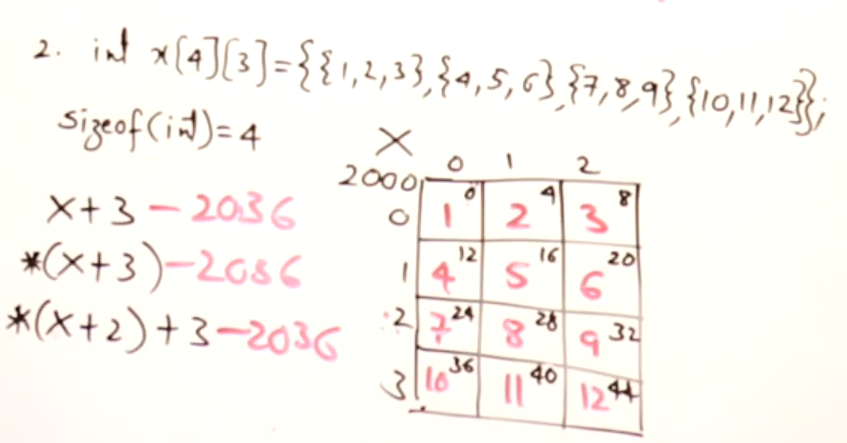 2. int x[4][3]={{1,2,3},{4,5,6},{7,8,9},{10,11,12}};
sizeof(int)=4
X
0 1 2
2000
x+3 - 2036
*(x+3) - 2036
*(x+2)+3 - 2036
0 1 0 2 4 3 8
1 4 12 5 16 6 20
2 7 24 8 28 9 32
3 10 36 11 40 12 44